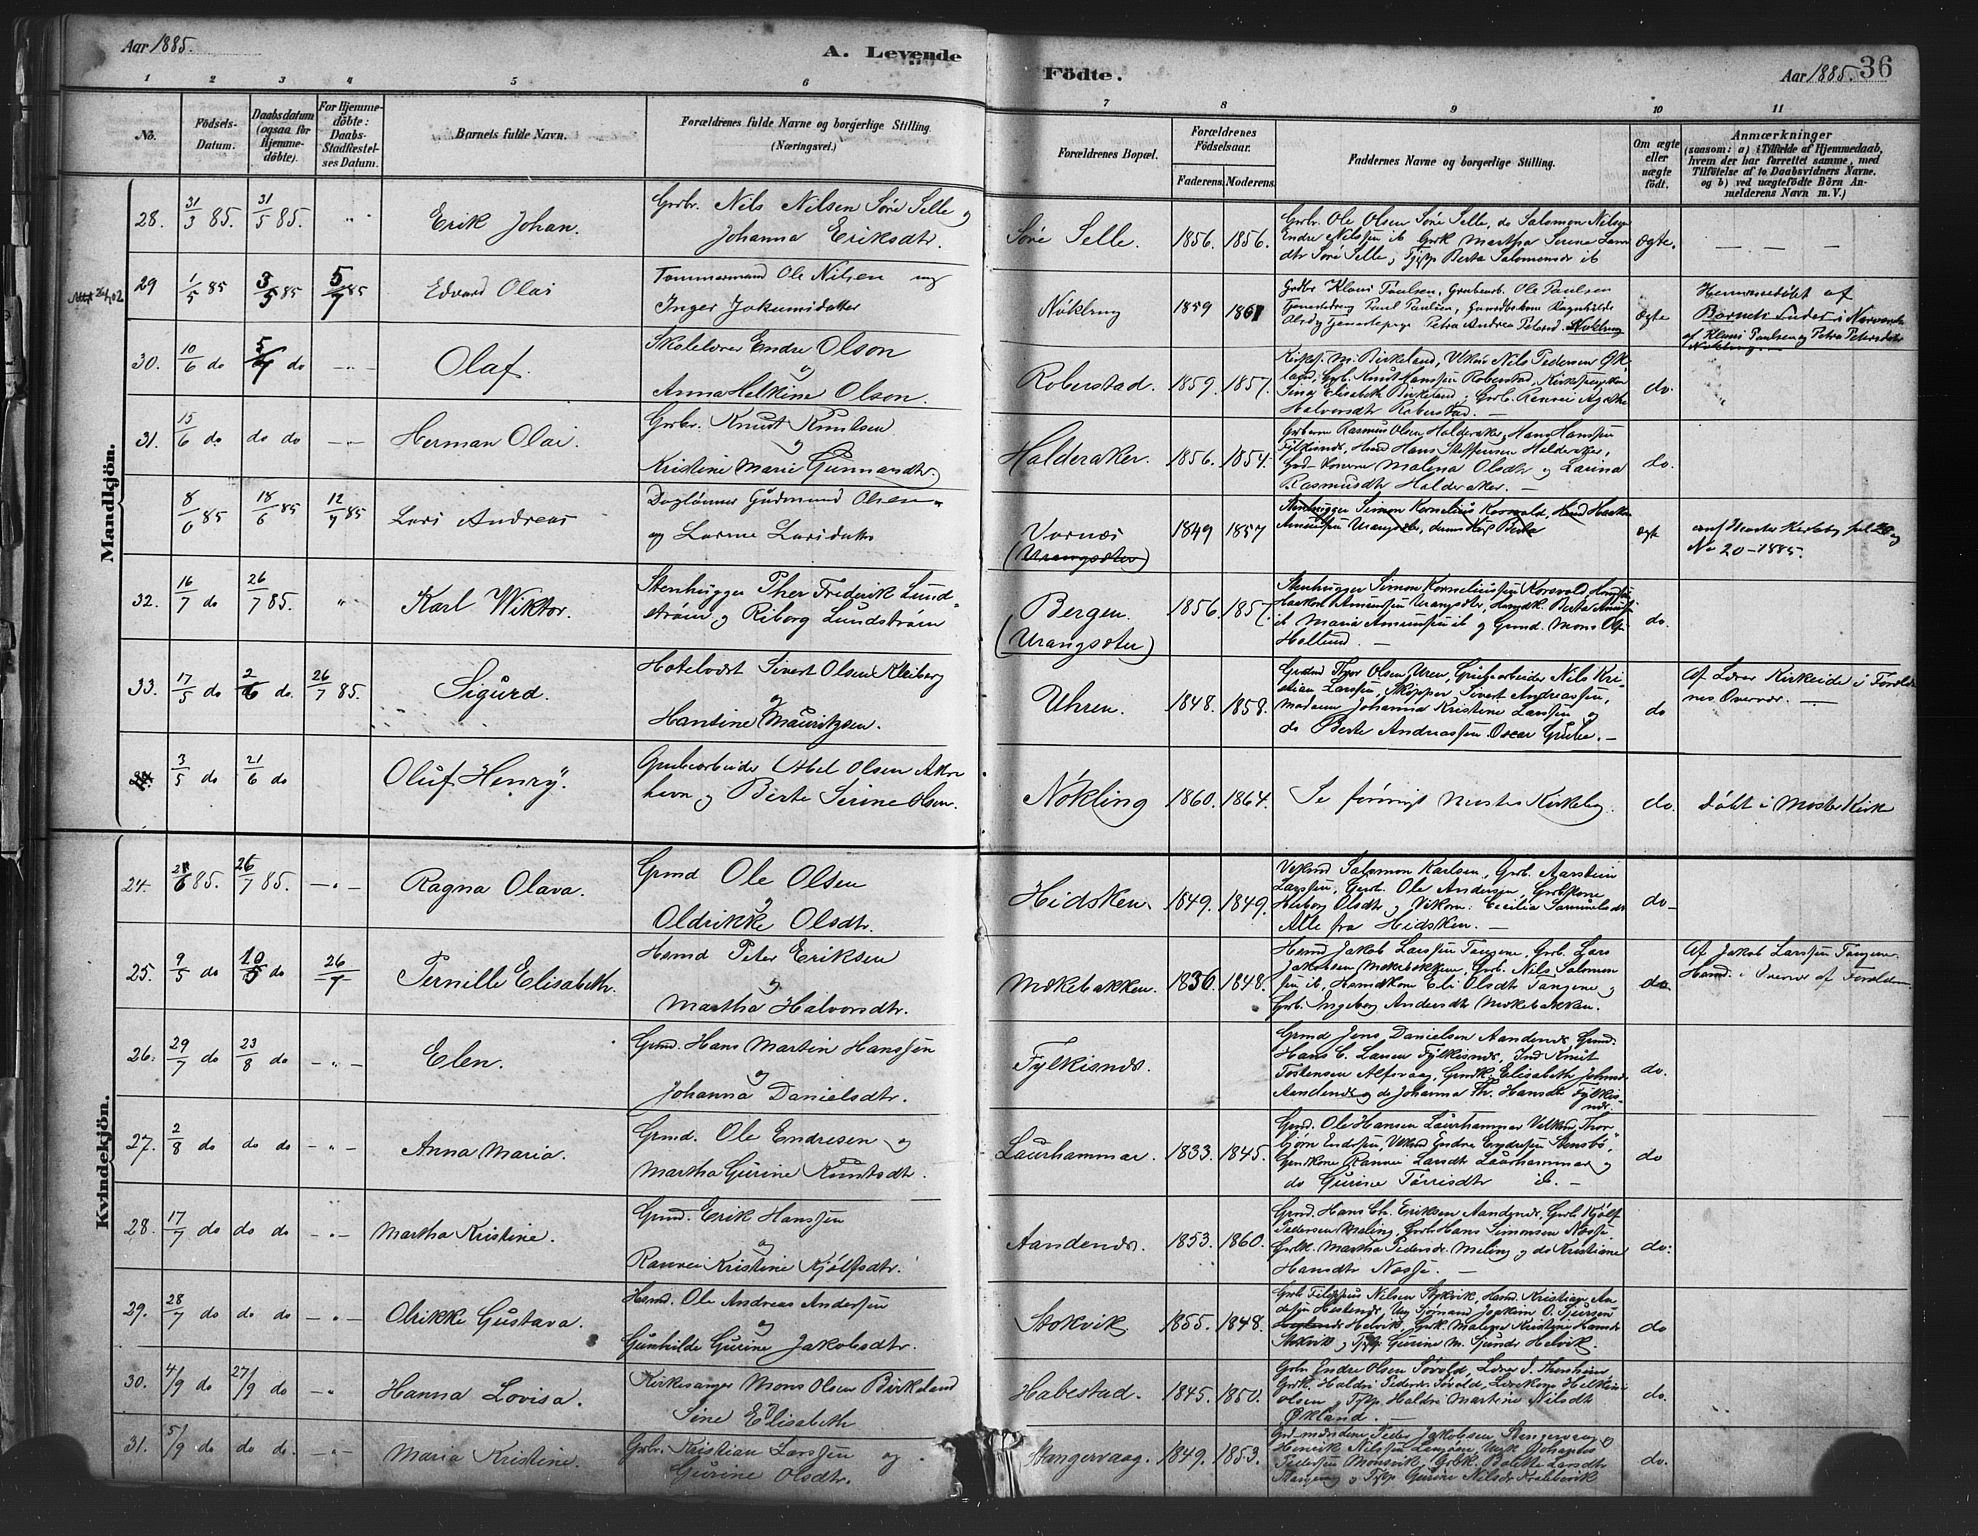 Aar 1885.
A. Levende
Födte.
Aar 1885.
36
1 2 3 4 5 6 7 8 9 10 11
No.
Födsels-
Datum.
Daabsdatum
(ogsaa for
Hjemme-
döbte).
For Hjemme-
döbte:
Daabs-
Stadfæstel-
ses Datum.
Barnets fulde Navn.
Forældrenes fulde Navne og borgerlige Stilling.
(Næringsvei.)
Forældrenes Bopæl.
Forældrenes
Födselsaar.
Faderens. Moderens.
Faddernes Navne og borgerlige Stilling.
Om ægte
eller
uægte
födt.
Anmærkninger
(saasom: a) i Tilfælde af Hjemmedaab,
hvem der har forrettet samme, med
Tilföielse af to Daabsvidners Navne.
og b) ved uægtefödte Börn An-
melderens Navn m. V.)
Mandkjön.
28. 31/3 85. 31/5 85. Erik Johan.
Grbr. Nils Nilsen Söre Selle og
Johanna Eriksdtr.
Söre Selle. 1856. 1856.
Grbr. Ole Olsen Söre Selle, do Salomon Nilsen
Endre Nilssen ib Grk Martha Serina Lam
dtr Söre Selle, Tjgp Berta Salomonsdr ib
Ægte. — — —
29 1/5 85 3/5 85 5/7 85 Edvard Olai
Tømmermand Ole Nilsen og
Inger Jokumsdatter
Nökling 1859 1861
Grdbr Klaus Paulsen, Grubearb. Ole Paulsen
Tjenestedreng Paul Paulsen, Gaardbrkone Ragnhilde
Olsdtr, Tjenestepige Petra Andrea Petersd. Nökling
Ægte
Hjemmedöbt af
Barnets Fader i Nærværelse
af Klaus Paulsen og Petra Petersdatter
Nökling.
30. 10/6 do 5/7 do Olaf.
Skolelærer Endre Olson
og
Anna Helkine Olson.
Roberstad. 1859. 1857.
Kirkes. M. Birkeland, Vikar Nils Pedersen Øk-
land, Grb. Knut Hanssen Roberstad, Kirkesangerkone
Sina Elisabeth Birkeland, Grb. Rannei Agathe
Halvorsdtr Roberstad. —
do.
31. 15/6 do do do Herman Olai.
Grbr. Knut Knutsen
og
Kristine Marie Gunnardtr.
Halderaker. 1856. 1854.
Grbrne Rasmus Olsen Halderaker, Hans Hanssen
Fylkisnds, Hmd Hans Steffensen Halderaker,
Grd-konerne Malena Olsdtr og Larina
Rasmusdtr Halderaker. —
do.
8/6 85 18/6 85 12/7 85 Lars Andreas
Daglønner Gudmund Olsen
og Larine Larsdatter
Vornæs
(Urangsvter) 1849 1857
Stenhugger Simon Kornelius Korsvold, Hmd Haakon
Amundsen Urangsvter, dennes Kone Berta
Ægt
No 20-1885.
32. 16/7 do 26/7 85. Karl Wiktor.
Stenhugger Pher Frederik Lund-
ström og Riborg Lundström
Bergen.
(Urangsvter) 1856. 1857.
Stenhugger Simon Korneliussen Korsvold, Hmd
Haakon Amundsen Urangsvter, Hmdk. Berta
ib Marie Amundsen ib og Grmd. Mons Olsen
Hollund —
do.
33. 17/5 do 2/6 do. 26/7 85. Sigurd.
Hotelvært Sivert Olsen Kleiberg
og
Hansine Mauritzsen.
Uhren. 1848. 1858.
Grdmd Thor Olsen Uren, Grubearbeider Nils Kri-
stian Larssen, Skipper Sivert Andreassen,
Madame Johanna Kristine Larssen og
do Berte Andreassen Oscar Grube. —
do
Af Lærer Kirkeide i Foræld
nes Overvær. —
34. 3/5 do 21/6 do Oluf Henry.
Grubearbeider Abel Olsen Akre
havn og Berte Serine Olsen.
Nökling 1860. 1864.
Se forövrigt Moster Kirkebog.
do.
Döbt i Moster Kirke
Kvindekjön.
24. 28/6 85. 26/7 85. Ragna Olava.
Grmd Ole Olsen
og
Oldrikke Olsdtr.
Hidsken. 1849. 1849.
Velmd Salomon Karlsen, Grb. Aarstein
Larssen, Grb. Ole Andersen, Grbkone
Herborg Olsdtr og Velkone: Cecilia Samuelsdtr
Alle fra Hidsken. —
do
25. 9/5 do 10/5 do 26/7 Pernille Elisabeth.
Hsmd Peter Eriksen
og
Martha Halvorsdtr.
Mökebakken. 1836. 1848.
Hsmd Jakob Larssen Tangene, Grb. Lars
Jakobsen Mökebakken, Grb. Nils Salomon
sen ib, Hsmdkone Eli Olsdtr Tangene og
Grb. Ingeborg Andersdtr Mökebakken.
do
Af Jakob Larssen Tangene
Hsmd. i Overvær af Forældrene
26. 29/7 do 23/8 do Elen.
Grmd. Hans Martin Hanssen
og
Johanna Danielsdtr.
Fylkisnds.
Grmd Jens Danielsen Aandends, Grmd.
Hans C. Larsen Fylkisnds, Ind Knut
Tostensen Alfsvaag, Grmdk. Elisabeth Johnsd.
Aandends og do Johanna Th. Hansdtr Fylkis-
nds.
do.
27. 2/8 do do do Anna Maria.
Grmd. Ole Endresen og
Martha Gurine Knutsdtr.
Laurhammar. 1833. 1845.
Grmd. Ole Hansen Laurhammar Velkmd Thor
björn Endresen, Velkmd Endre Endresen Stensbö,
Grmdkone Rannei Larsdtr Laurhammar og
do Gurine Tørrisdtr ib. —
do
28. 17/7 do do do Martha Kristine.
Grmd. Erik Hanssen
og
Rannei Kristine Kjölfsdtr.
Aandends. 1853. 1860.
Grmd. Hans Chr. Eriksen Aandends, Grb. Kjölf
Pedersen Meling, Grb. Hans Simonsen Næsse.
Grbk. Martha Pedersdr Meling og do Kristiane
Hansdtr Næsse. —
do.
29. 28/7 do do do Olrikke Gustava.
Hsmd. Ole Andreas Andersen
og
Gunhilde Gurine Jakobsdtr.
Stokvik 1855. 1848.
Grb Filippus Nilsen Stokvik, Hsmd. Kristian An-
dersen Hestends, Ung Sjömand Joakim O. Sjursen
Helvik, Grbk. Malene Kristine Hansdr
Stokvik og Tjgp Gurine M. Sjursdr Helvik.
do
30. 4/9 do 27/9 do Hanna Lovisa.
Kirkesanger Mons Olsen Birkeland
og
Sine Elisabeth
Habestad. 1845. 1850.
Grbr Endre Olsen Sövold, Lærer I. Thorsheim
Grbk. Haldri Pedersdr Sövold, Lærerkone Helkine
Olsen og Tjgp. Haldri Martine Nilsdtr
Økland. —
do.
31. 5/9 do do do. Maria Kristine.
Grbr. Kristian Larssen og
Gurine Olsdtr.
Stangervaag. 1849. 1853.
Grdmændene Peder Jakobsen Rengervaag og
Henrik Nilssen Lengöen, Ugk Johannes
Pedersen Monsvik, Grbk. Bolette Larsdtr
Stangerv. og Tjgp. Gurine Nilsdr Krabbevik
do.